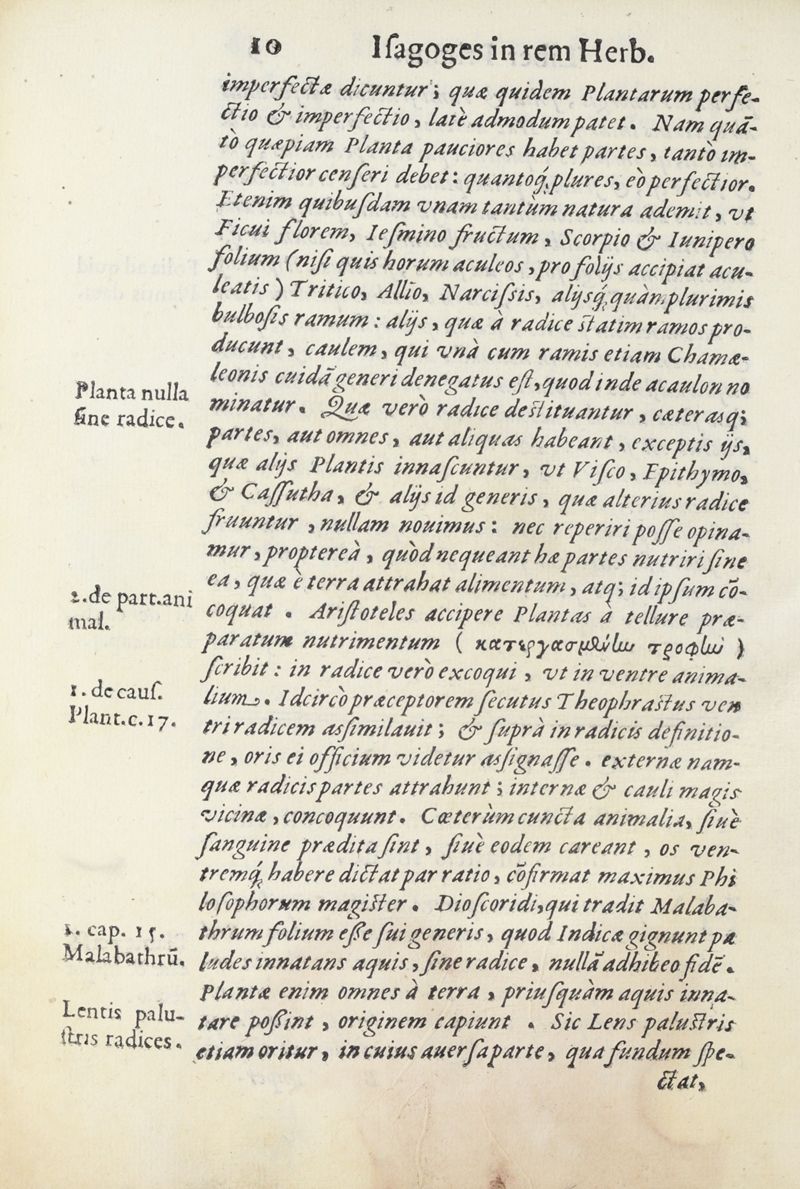 10 Iſagoges in rem Herb.
imperfectæ dicuntur; quæ quidem Plantarum perfe-
ctio & imperfectio, latè admodum patet. Nam quã-
tò quæpiam Planta pauciores habet partes, tantò im-
perfectior cenſeri debet: quantoq́; plures, eò perfectior.
Etenim quibuſdam vnam tantùm natura ademit, vt
Ficui florem, Ieſmino fructum, Scorpio & Iunipero
folium (niſi quis horum aculeos, pro folijs accipiat acu-
leatis) Tritico, Allio, Narciſsis, alijsq́; quàm plurimis
bulboſis ramum: alijs, quæ à radice ſtatim ramos pro-
ducunt, caulem, qui vnà cum ramis etiam Chamæ-
leonis cuidã generi denegatus eſt, quod inde acaulon no
minatur. Quæ verò radice deſtituantur, cæterasq;
Planta nulla
ſine radice.
partes, aut omnes, aut aliquas habeant, exceptis ijs,
quæ alijs Plantis innaſcuntur, vt Viſco, Epithymo,
& Caſſutha, & alijs id generis, quæ alterius radice
fruuntur, nullam nouimus: nec reperiri poſſe opina-
mur, propterea, quòd nequeant hæ partes nutriri ſine
ea, quæ è terra attrahat alimentum, atq; id ipſum cõ-
2.de part.ani
mal.
coquat. Ariſtoteles accipere Plantas à tellure præ-
paratum nutrimentum (κατειργασμένην τροφὴν)
ſcribit: in radice verò excoqui, vt in ventre anima-
lium. Idcircò præceptorem ſecutus Theophraſtus ven
1. de cauſ.
Plant.c.17.
tri radicem aſsimilauit; & ſuprà in radicis definitio-
ne, oris ei officium videtur aſsignaſſe. externæ nam-
quæ radicis partes attrahunt; internæ & cauli magis
vicinæ, concoquunt. Cœterùm cuncta animalia, ſiuè
ſanguine prædita ſint, ſiuè eodem careant, os ven-
tremq́; habere dictat par ratio, cõfirmat maximus Phi
loſophorum magiſter. Dioſcoridi, qui tradit Malaba-
1. cap. 15.
Malabathrũ.
thrum folium eſſe ſui generis, quod Indicæ gignunt pa
ludes innatans aquis, ſine radice, nullã adhibeo fidẽ.
Plantæ enim omnes à terra, priuſquàm aquis inna-
tare poſsint, originem capiunt. Sic Lens paluſtris
Lentis palu-
ſtris radices.
etiam oritur, in cuius auerſa parte, qua fundum ſpe-
ctat,